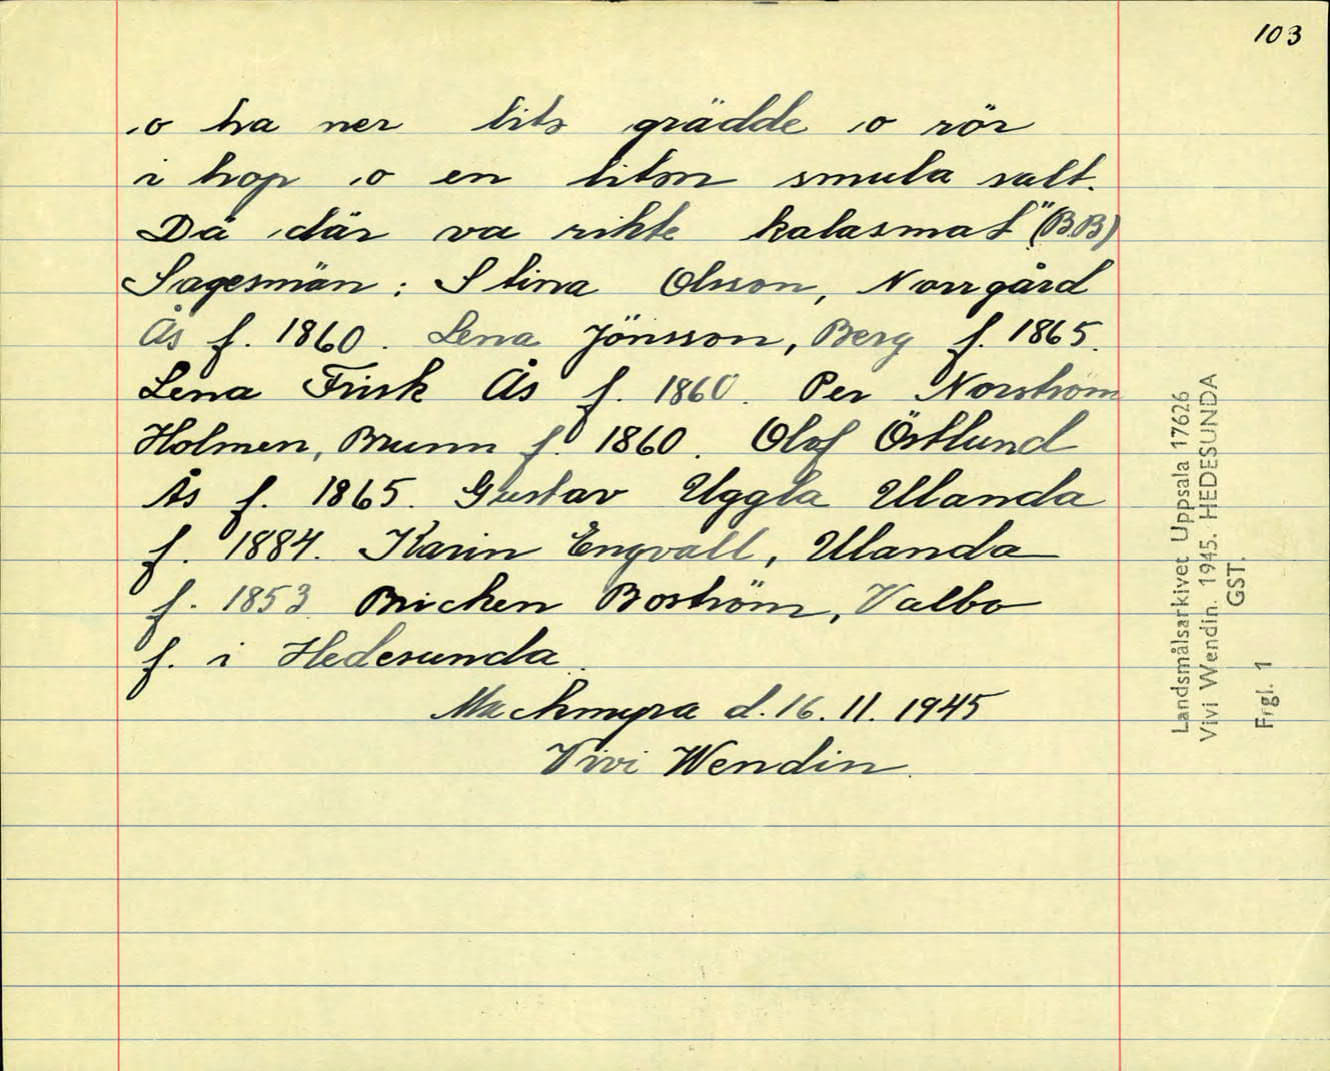 103
o ha ner lits grädde o rör
i hop o en liten smula salt.
Dä där va rikte kalasmat" (B.B)
Sagesmän: Stina Olsson, Norrgård
Ås f. 1860. Lena Jönsson, Berg f. 1865.
Lena Frisk Ås f. 1860. Per Norström
Holmen, Brunn f. 1860. Olof Östlund
Ås f. 1865. Gustav Uggla Ulanda
f. 1884. Karin Engvall, Ulanda
f. 1853 Bricken Boström, Valbo
f. i Hedesunda.
Mackmyra d. 16. 11. 1945
Vivi Wendin.
Landsmålsarkivet Uppsala 17626
Vivi Wendin. 1945. HEDESUNDA
GST.
Frgl. 1